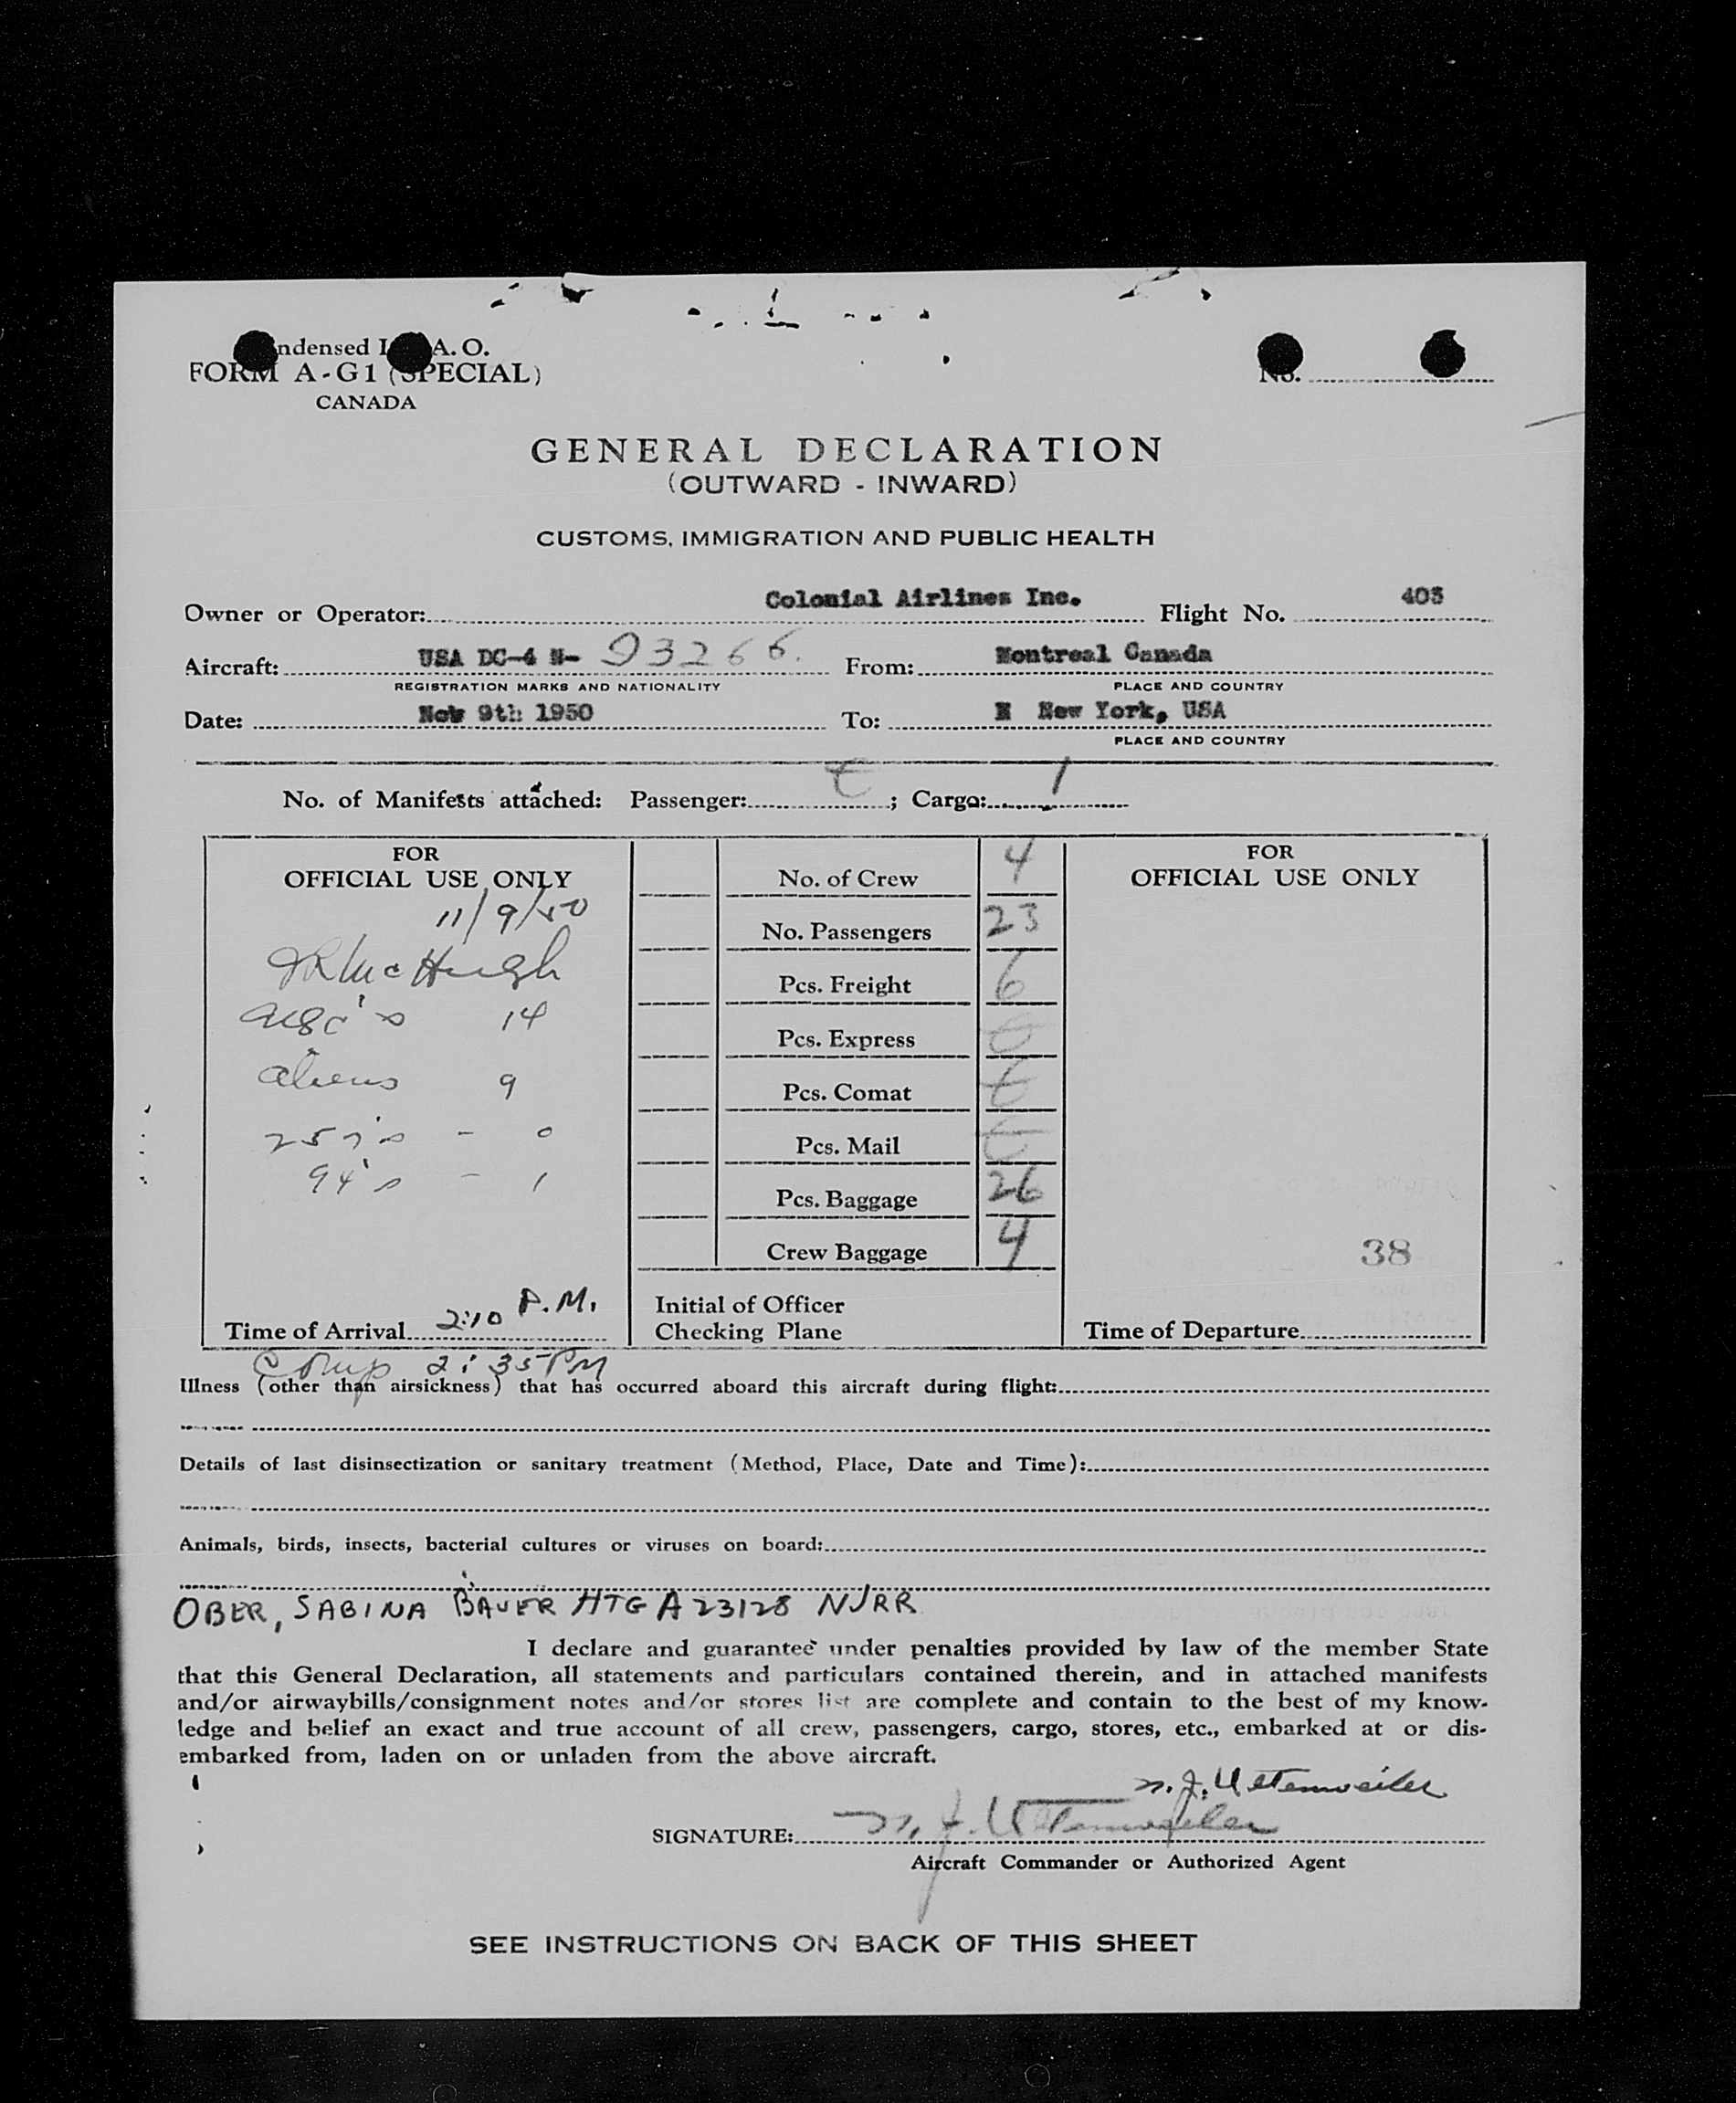 ndensed I A. O.
FORM A-G1 (SPECIAL)
CANADA
No.
GENERAL DECLARATION
(OUTWARD - INWARD)
CUSTOMS, IMMIGRATION AND PUBLIC HEALTH
Owner or Operator: Colonial Airlines Inc. Flight No. 403
Aircraft: USA DC-4 N- 93266. From: Montreal Canada
REGISTRATION MARKS AND NATIONALITY PLACE AND COUNTRY
Date: Nov 9th 1950 To: N New York, USA
PLACE AND COUNTRY
No. of Manifests attached: Passenger: ; Cargo: 1
FOR
OFFICIAL USE ONLY
11/9/50
McHugh
14
aliens 9
257's - 0
94's - 1
Time of Arrival 2:10 P.M.
Comp 2:35 PM
No. of Crew 4
No. Passengers 23
Pcs. Freight 6
Pcs. Express
Pcs. Comat
Pcs. Mail
Pcs. Baggage 26
Crew Baggage 4
Initial of Officer
Checking Plane
FOR
OFFICIAL USE ONLY
38
Time of Departure
Illness (other than airsickness) that has occurred aboard this aircraft during flight:
Details of last disinsectization or sanitary treatment (Method, Place, Date and Time):
Animals, birds, insects, bacterial cultures or viruses on board:
OBER, SABINA BAUER HTG A23128 NJRR
I declare and guarantee under penalties provided by law of the member State
that this General Declaration, all statements and particulars contained therein, and in attached manifests
and/or airwaybills/consignment notes and/or stores list are complete and contain to the best of my know-
ledge and belief an exact and true account of all crew, passengers, cargo, stores, etc., embarked at or dis-
embarked from, laden on or unladen from the above aircraft.
n. J. Uttenweiler
SIGNATURE: n. J. Uttenweiler
Aircraft Commander or Authorized Agent
SEE INSTRUCTIONS ON BACK OF THIS SHEET